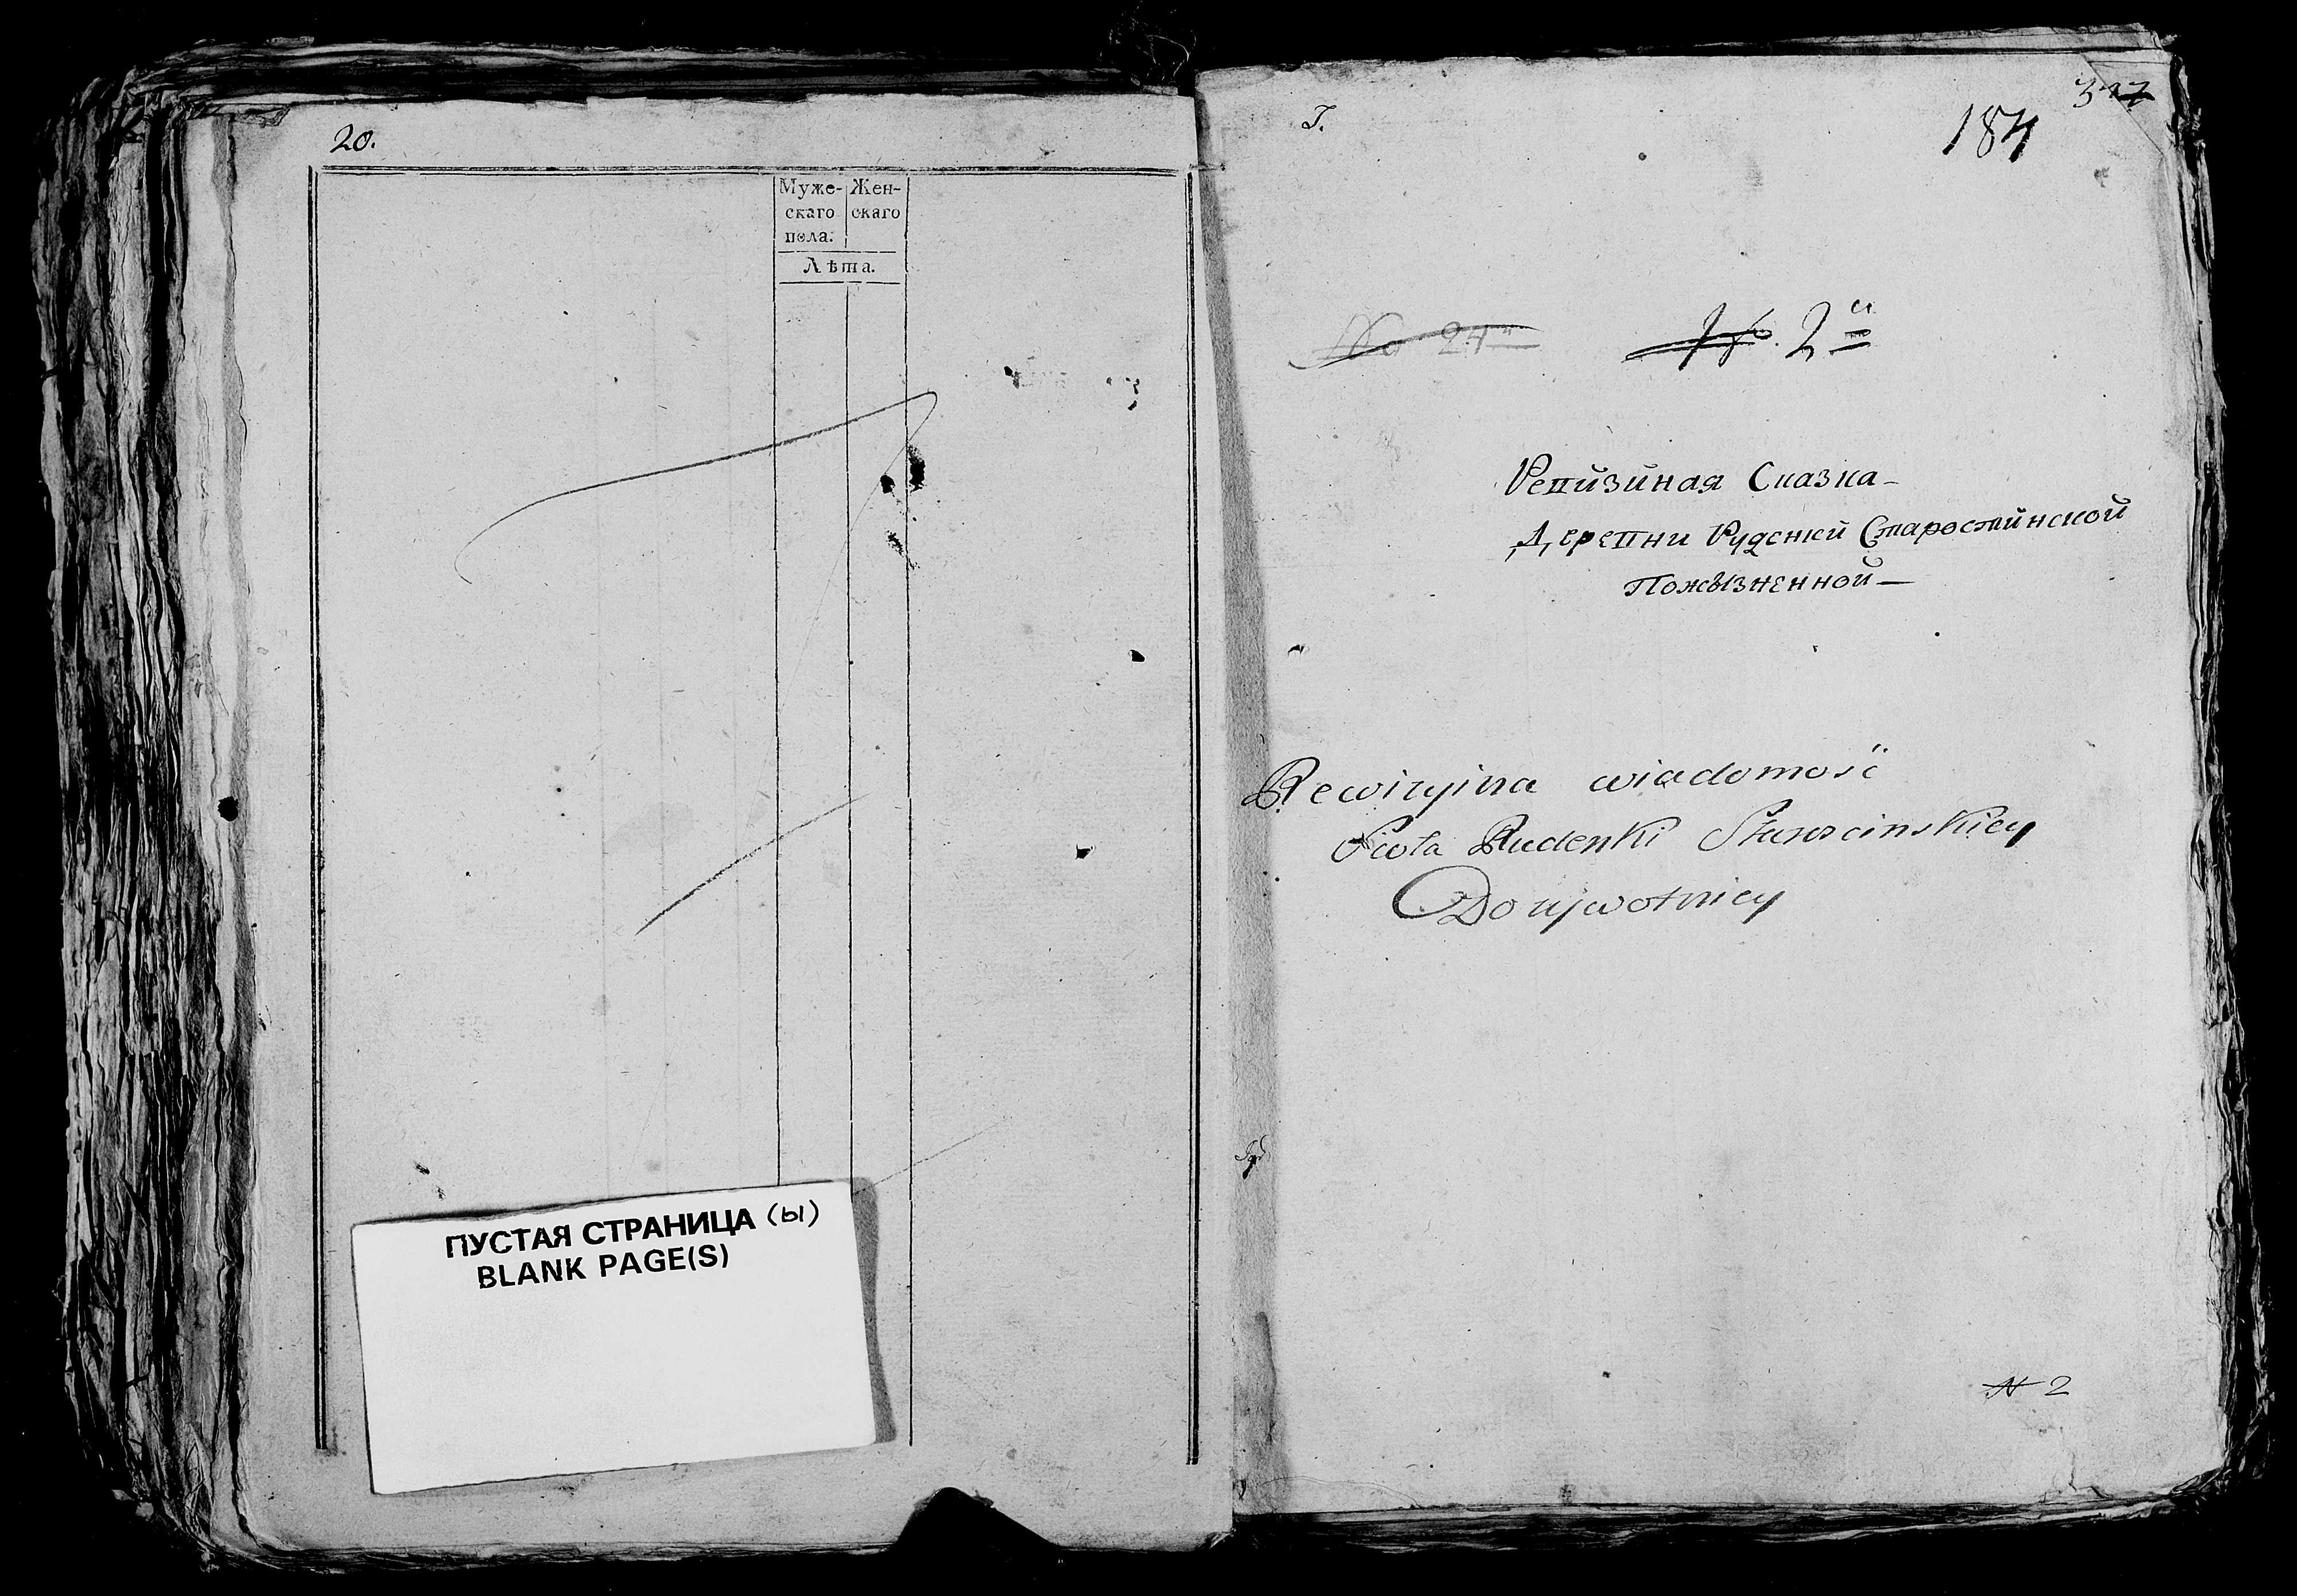 20.
Муже- Жен-
скаго скаго
пола.
Лѣта.
ПУСТАЯ СТРАНИЦА (ы)
BLANK PAGE(S)
I.
184
No 24
No. 2й
Ревизиная Сказка
Деревни Рудский Старостинской
Пожызненной
Rewizyina wiadomość
Sioła Rudeńki Starościnskiey
Dożywotniey
N 2